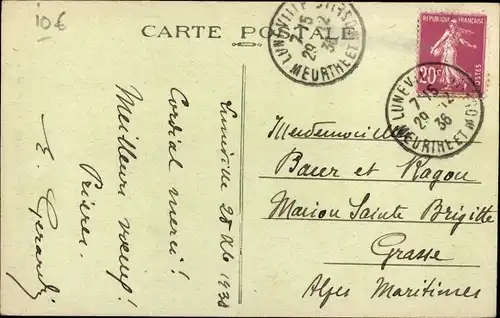 10€
CARTE POSTALE
LUNEVILLE
7-15
29-12
36
MEURTHE ET MOS
REPUBLIQUE FRANÇAISE
20c
POSTES
LUNEVILLE
7-15
29-12
36
MEURTHE ET MOS
Luneville 28
Cordial merci!
Meilleurs vœux!
Prières.
Mesdemoiselles
Bauer et Ragon
Maison Sainte Brigitte
Grasse
Alpes Maritimes